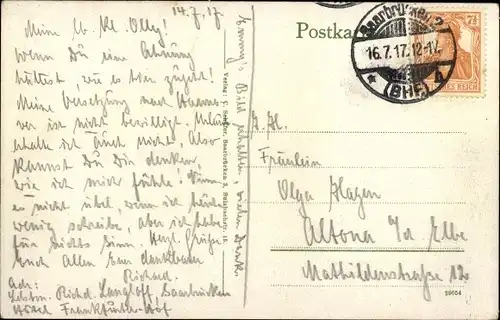 14.7.17.
Mein lb. kl. Olly!
Wenn Du eine Ahnung
hättest, wie es hier zugeht!
Meine Versetzung nach Hannover
ist nicht bewilligt. Urlaub
erhalte ich auch nicht. Also
kannst Du Dir denken,
wie ich mich fühle! Nimm
es nicht übel, wenn ich
wenig schreibe, aber ich habe
für Nichts Sinn. Herzl. Grüße
Euch Allen Euer dankbarer
Richard.
Adr:
Richd. Langloff, Saarbrücken
Hôtel Frankfurter-Hof
Emmy's Bild erhalten, vielen Dank.
Verlag: Saarbrücken
Postka
Saarbrücken 2
16.7.17.12-1
(BHF) 4
7½
ES REICH
Fräulein
Olga Hagen
Altona a/d. Elbe
Mathildenstraße 12